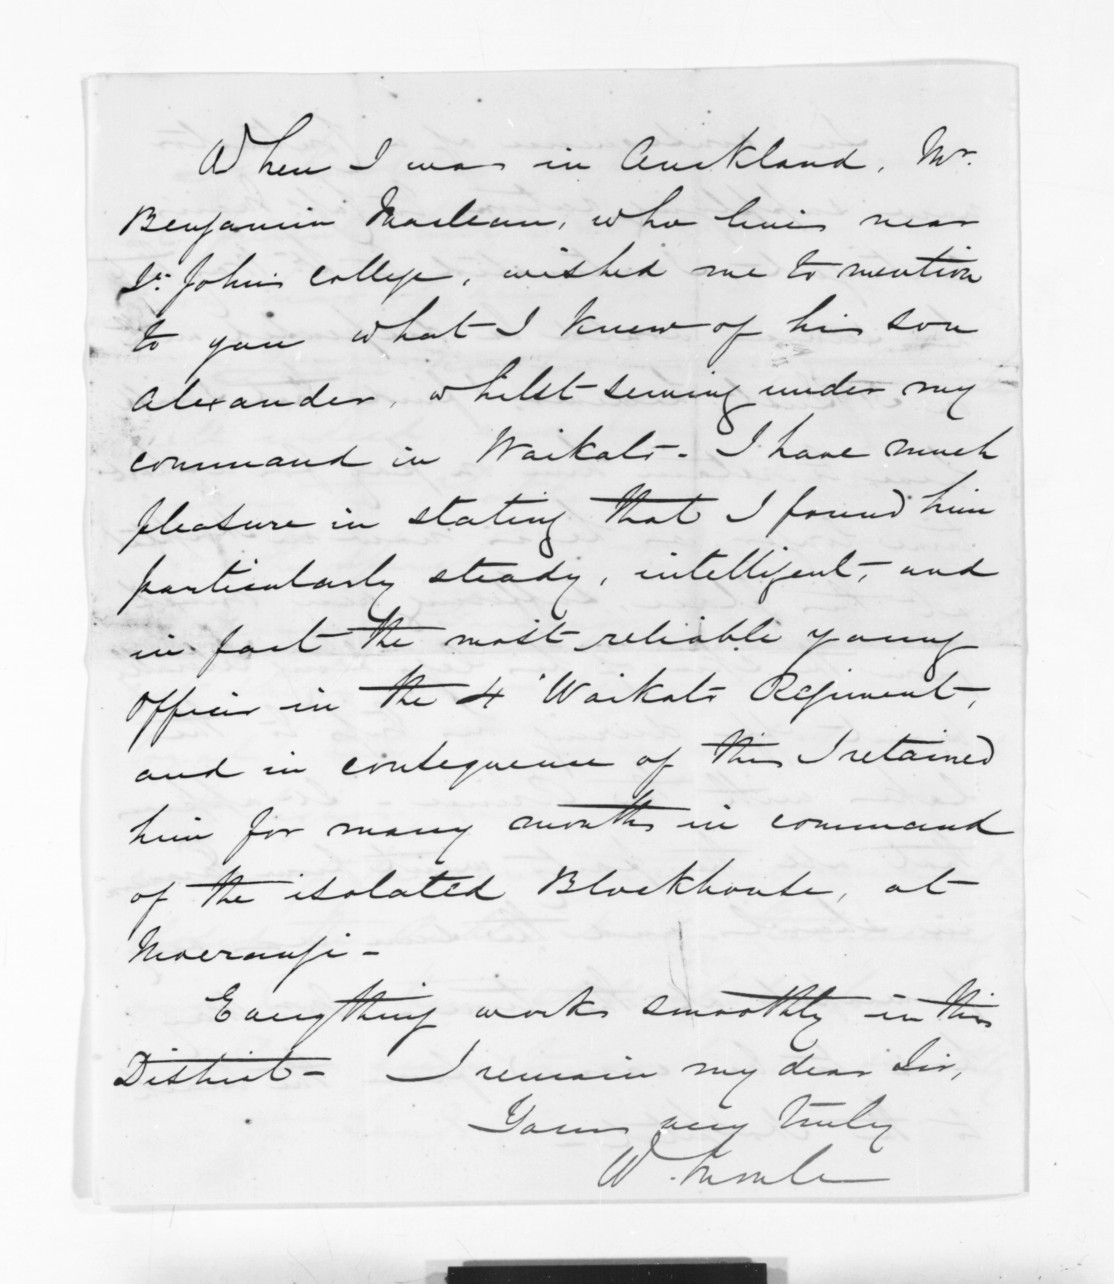 When I was in Auckland, Mr.
Benjamin Maclean, who lives near
St. Johns College, wished me to mention
to you what I knew of his son
Alexander, whilst serving under my
command in Waikato - I have much
pleasure in stating that I found him
particularly steady, intelligent, and
in fact the most reliable young
Officer in the 4 Waikato Regiment,
and in consequence of this I retained
him for many months in command
of the isolated Blockhouse, at
Moerangi -
Everything works smoothly in this
District - I remain my dear Sir,
Yours very truly
W. Moule